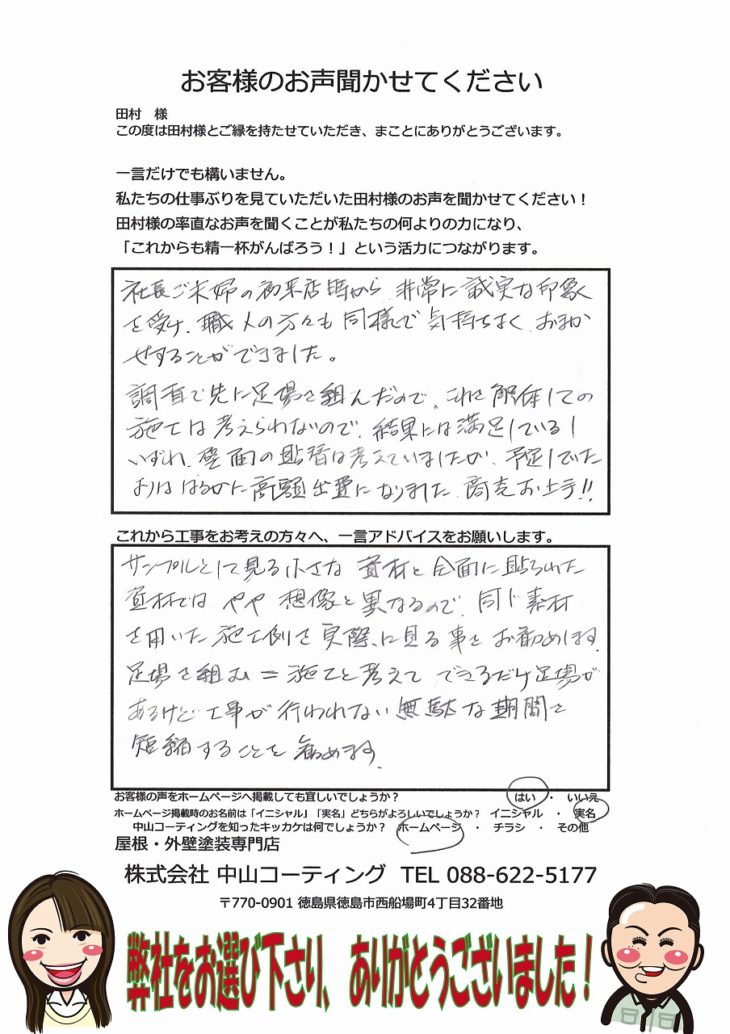 お客様のお声聞かせてください
田村　様
この度は田村様とご縁を持たせていただき、まことにありがとうございます。
一言だけでも構いません。
私たちの仕事ぶりを見ていただいた田村様のお声を聞かせてください！
田村様の率直なお声を聞くことが私たちの何よりの力になり、
「これからも精一杯がんばろう！」という活力につながります。
社長ご夫婦の初来店時から、非常に誠実な印象
を受け、職人の方々も同様で気持ちよく、おまか
せすることができました。
調査で先に足場を組んだので、これを解体しての
施工は考えられないので、結果には満足している！
いずれ、壁面の貼替は考えていましたが、予定していた
よりは はるかに高額出費になりました。商売お上手!!
これから工事をお考えの方々へ、一言アドバイスをお願いします。
サンプルとして見る小さな 資材と全面に貼られた
資材では やや 想像と異なるので、同じ素材
を用いた施工例を実際に見る事をお勧めします。
足場を組む＝施工と考えて できるだけ足場が
あるけど工事が行われない無駄な期間を
短縮することを 勧めます。
お客様の声をホームページへ掲載しても宜しいでしょうか？　はい ・ いいえ
ホームページ掲載時のお名前は「イニシャル」「実名」どちらがよろしいでしょうか？　イニシャル ・ 実名
中山コーティングを知ったキッカケは何でしょうか？　ホームページ ・ チラシ ・ その他
屋根・外壁塗装専門店
株式会社 中山コーティング　TEL 088-622-5177
〒770-0901 徳島県徳島市西船場町4丁目32番地
弊社をお選び下さり、ありがとうございました！